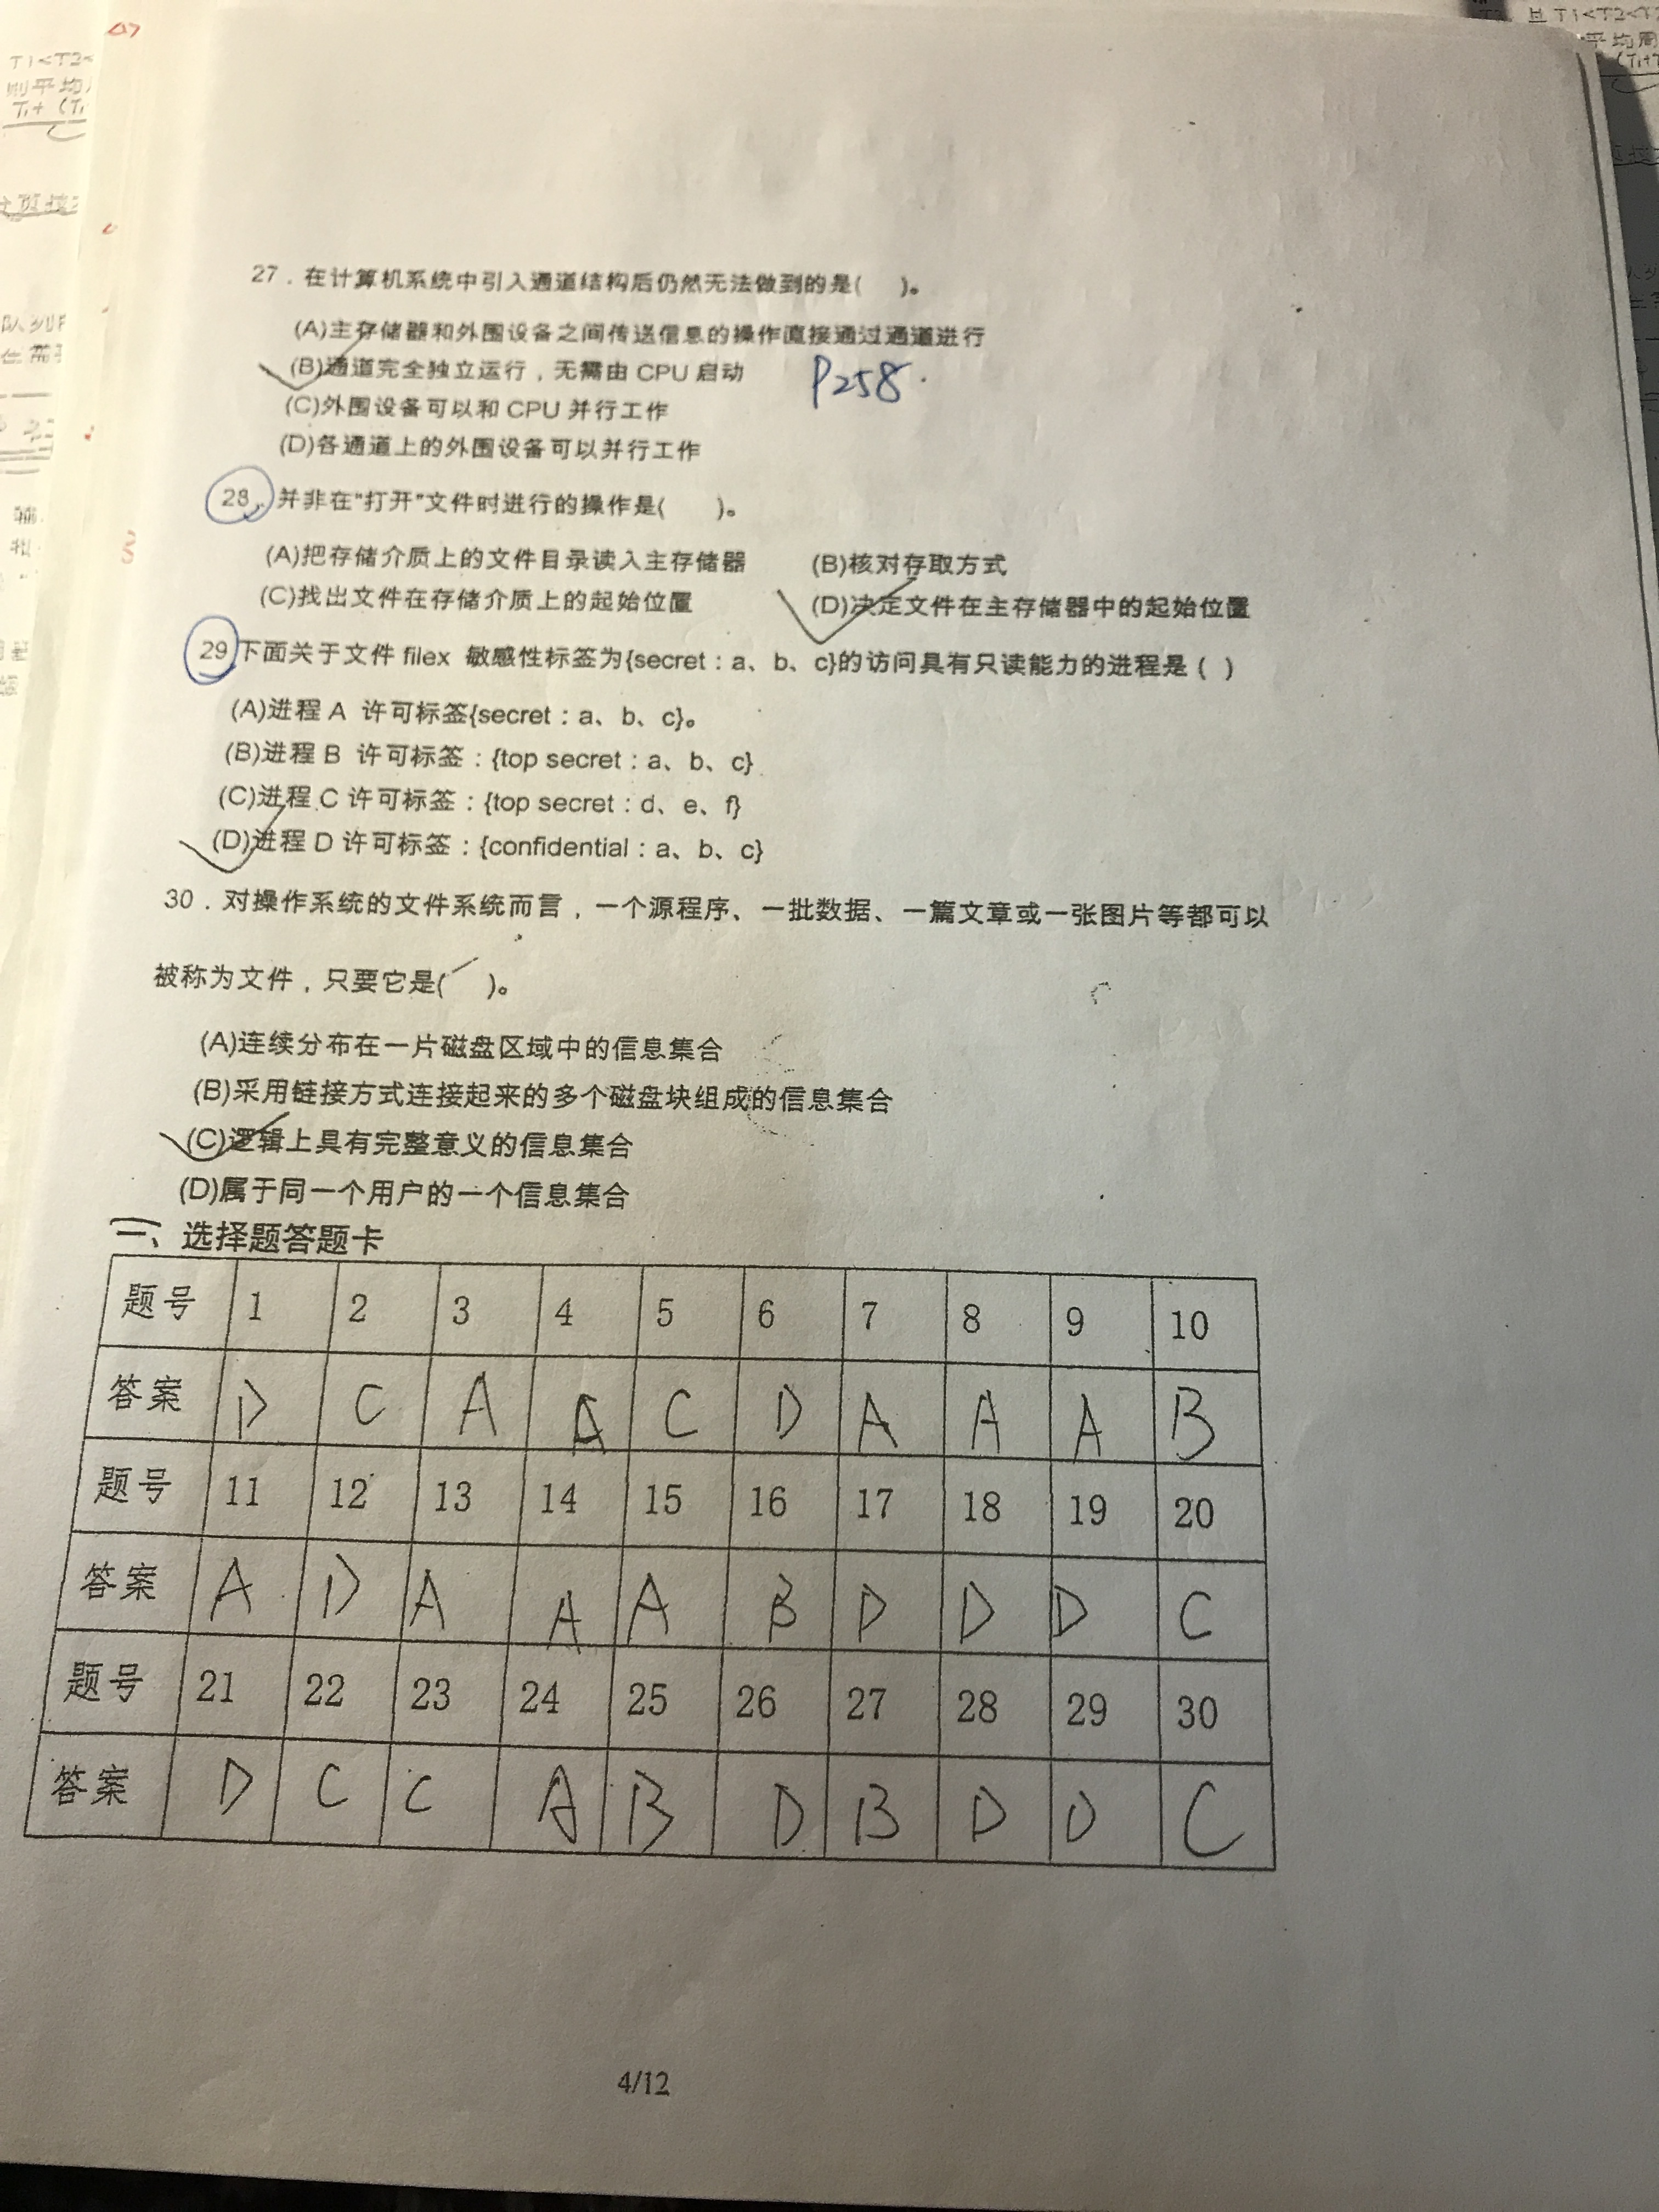 27．在计算机系统中引入通道结构后仍然无法做到的是(　)。
(A)主存储器和外围设备之间传送信息的操作直接通过通道进行
(B)通道完全独立运行，无需由 CPU 启动
P258.
(C)外围设备可以和 CPU 并行工作
(D)各通道上的外围设备可以并行工作
28．并非在“打开”文件时进行的操作是(　)。
(A)把存储介质上的文件目录读入主存储器 (B)核对存取方式
(C)找出文件在存储介质上的起始位置 (D)决定文件在主存储器中的起始位置
29 下面关于文件 filex 敏感性标签为{secret：a、b、c}的访问具有只读能力的进程是（ ）
(A)进程 A 许可标签{secret：a、b、c}。
(B)进程 B 许可标签：{top secret：a、b、c}
(C)进程 C 许可标签：{top secret：d、e、f}
(D)进程 D 许可标签：{confidential：a、b、c}
30．对操作系统的文件系统而言，一个源程序、一批数据、一篇文章或一张图片等都可以
被称为文件，只要它是(　)。
(A)连续分布在一片磁盘区域中的信息集合
(B)采用链接方式连接起来的多个磁盘块组成的信息集合
(C)逻辑上具有完整意义的信息集合
(D)属于同一个用户的一个信息集合
一、选择题答题卡
题号 1 2 3 4 5 6 7 8 9 10
答案 D C A A C D A A A B
题号 11 12 13 14 15 16 17 18 19 20
答案 A D A A A B D D D C
题号 21 22 23 24 25 26 27 28 29 30
答案 D C C A B D B D D C
4/12